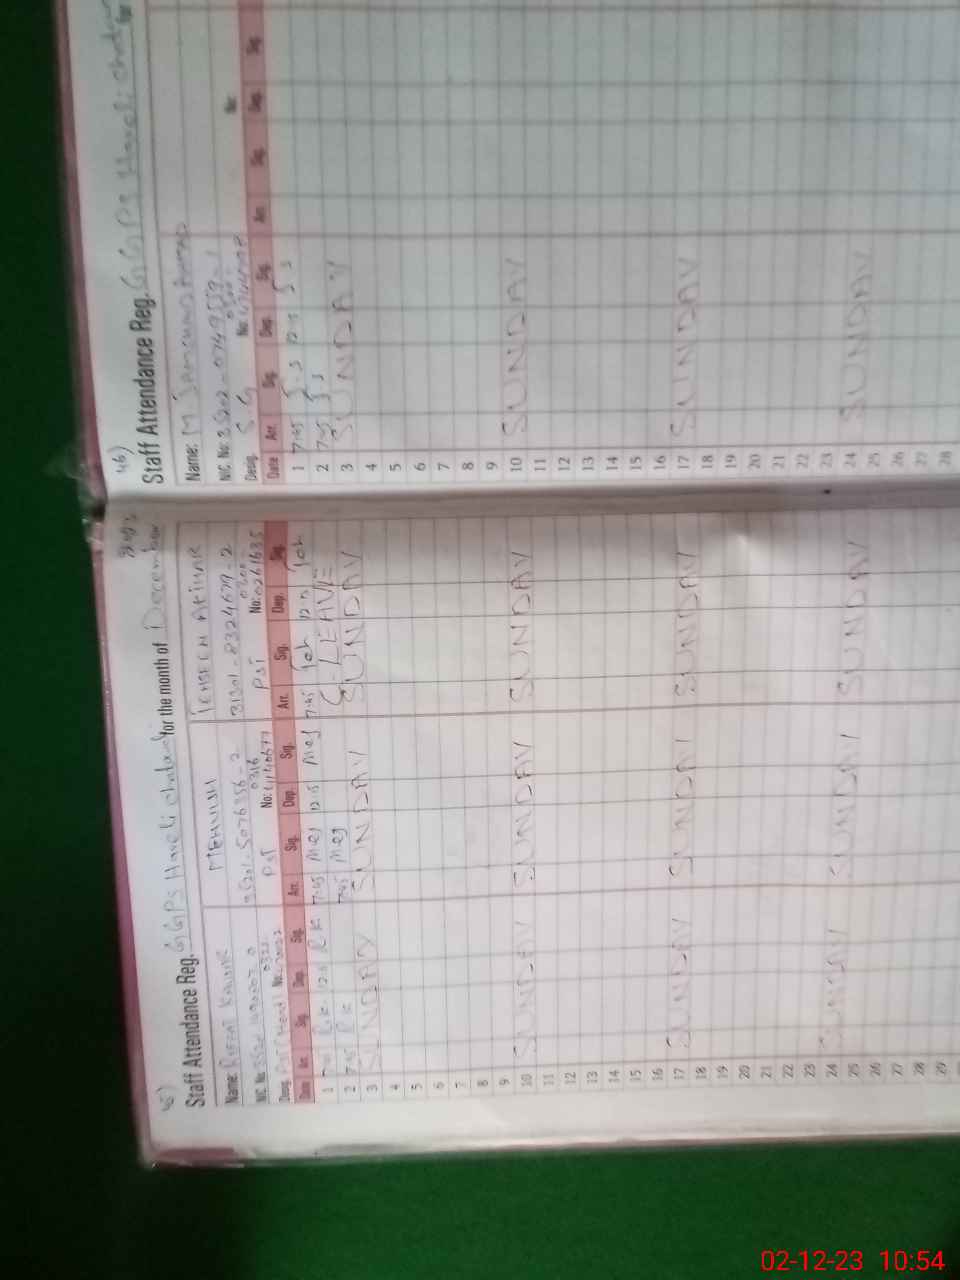 45)
Staff Attendance Reg. GGPS Haveli for the month of December
Name: RIFFAT KAUSAR MEHVISH
NIC No. 35201-5076356-2 31301-8324679-2
0321 0316 0300
Desig. PST (Head) No: PST No: 4140677 PST No: 0261635
Date Arr. Sig. Dep. Sig. Arr. Sig. Dep. Sig. Arr. Sig. Dep. Sig.
1 R.K. 12.15 R.K 7:45 Mej 12.15 Mej 7:45
2 7:45 R.K 7:45 Mej C. LEAVE
3 SUNDAY SUNDAY SUNDAY
4
5
6
7
8
9
10 SUNDAY SUNDAY SUNDAY
11
12
13
14
15
16
17 SUNDAY SUNDAY SUNDAY
18
19
20
21
22
23
24 SUNDAY SUNDAY SUNDAY
25
26
27
28
29
46)
Staff Attendance Reg. GGPS Haveli
for
Name: M
NIC No:
Desig. S.G No: No:
Date Arr. Sig. Dep. Sig. Arr. Sig. Dep. Sig.
1 7:45 S.S 12.15 S S
2 7:45 S S
3 SUNDAY
4
5
6
7
8
9
10 SUNDAY
11
12
13
14
15
16
17 SUNDAY
18
19
20
21
22
23
24 SUNDAY
25
26
27
28
02-12-23 10:54